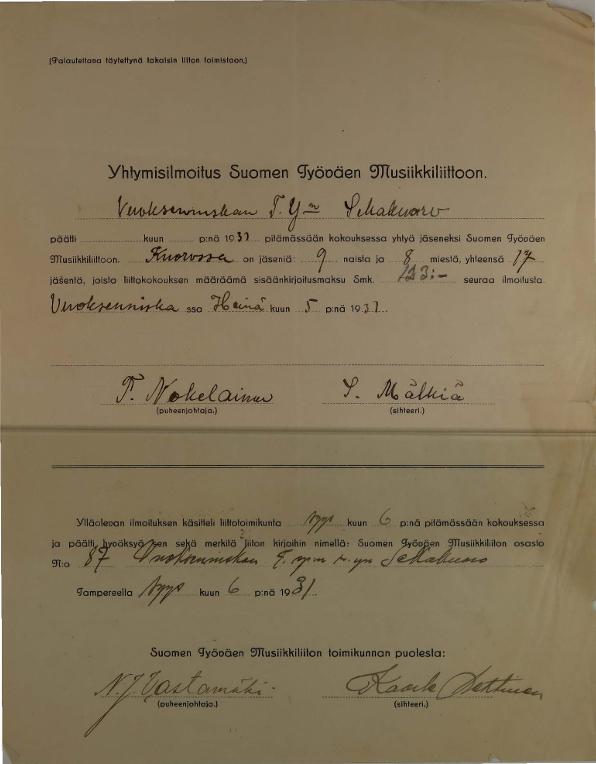 (Palautettana täytettynä takaisin liiton toimistoon.)
Yhtymisilmoitus Suomen Työväen Musiikkiliittoon.
Vuoksenniskan T. Y:n Sekakuoro
päätti kuun p:nä 1931 pitämässään kokouksessa yhtyä jäseneksi Suomen Työväen
Musiikkiliittoon. Kuorossa on jäseniä: 9 naista ja 8 miestä, yhteensä 17
jäsentä, joista liittokokouksen määräämä sisäänkirjoitusmaksu Smk. 123:- seuraa ilmoitusta.
Vuoksenniska ssa Heinä kuun 5 p:nä 1931.
T. Nokelainen S. Mälkiä
(puheenjohtaja.) (sihteeri.)
Ylläolevan ilmoituksen käsitteli liittotoimikunta syys kuun 6 p:nä pitämässään kokouksessa
ja päätti hyväksyä sen sekä merkitä liiton kirjoihin nimellä: Suomen Työväen Musiikkiliiton osasto
N:o 87 Vuoksenniskan T. r.y. Sekakuoro
Tampereella syys kuun 6 p:nä 1931.
Suomen Työväen Musiikkiliiton toimikunnan puolesta:
N. J. Vastamäki. Kaarle
(puheenjohtaja.) (sihteeri.)